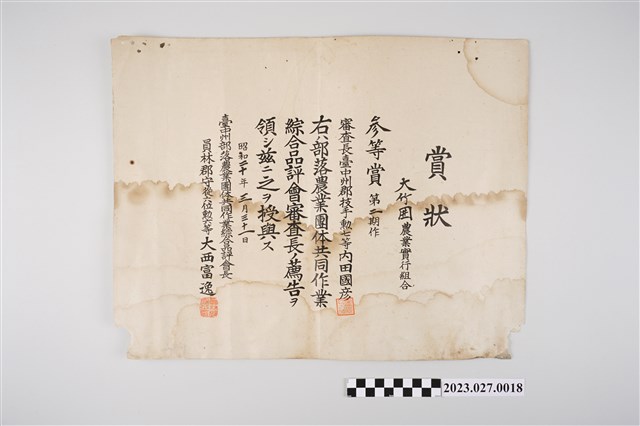 賞狀
大竹囝農業實行組合
參等賞 第二期作
審査長臺中州郡技手勳七等內田國彦
右ハ部落農業團体共同作業
綜合品評會審査長ノ薦告ヲ
領シ茲ニ之ヲ授與ス
昭和二十年三月三十一日
臺中州部落農業團体共同作業綜合品評會長
員林郡守從位勳等大西富逸
2023.027.0018